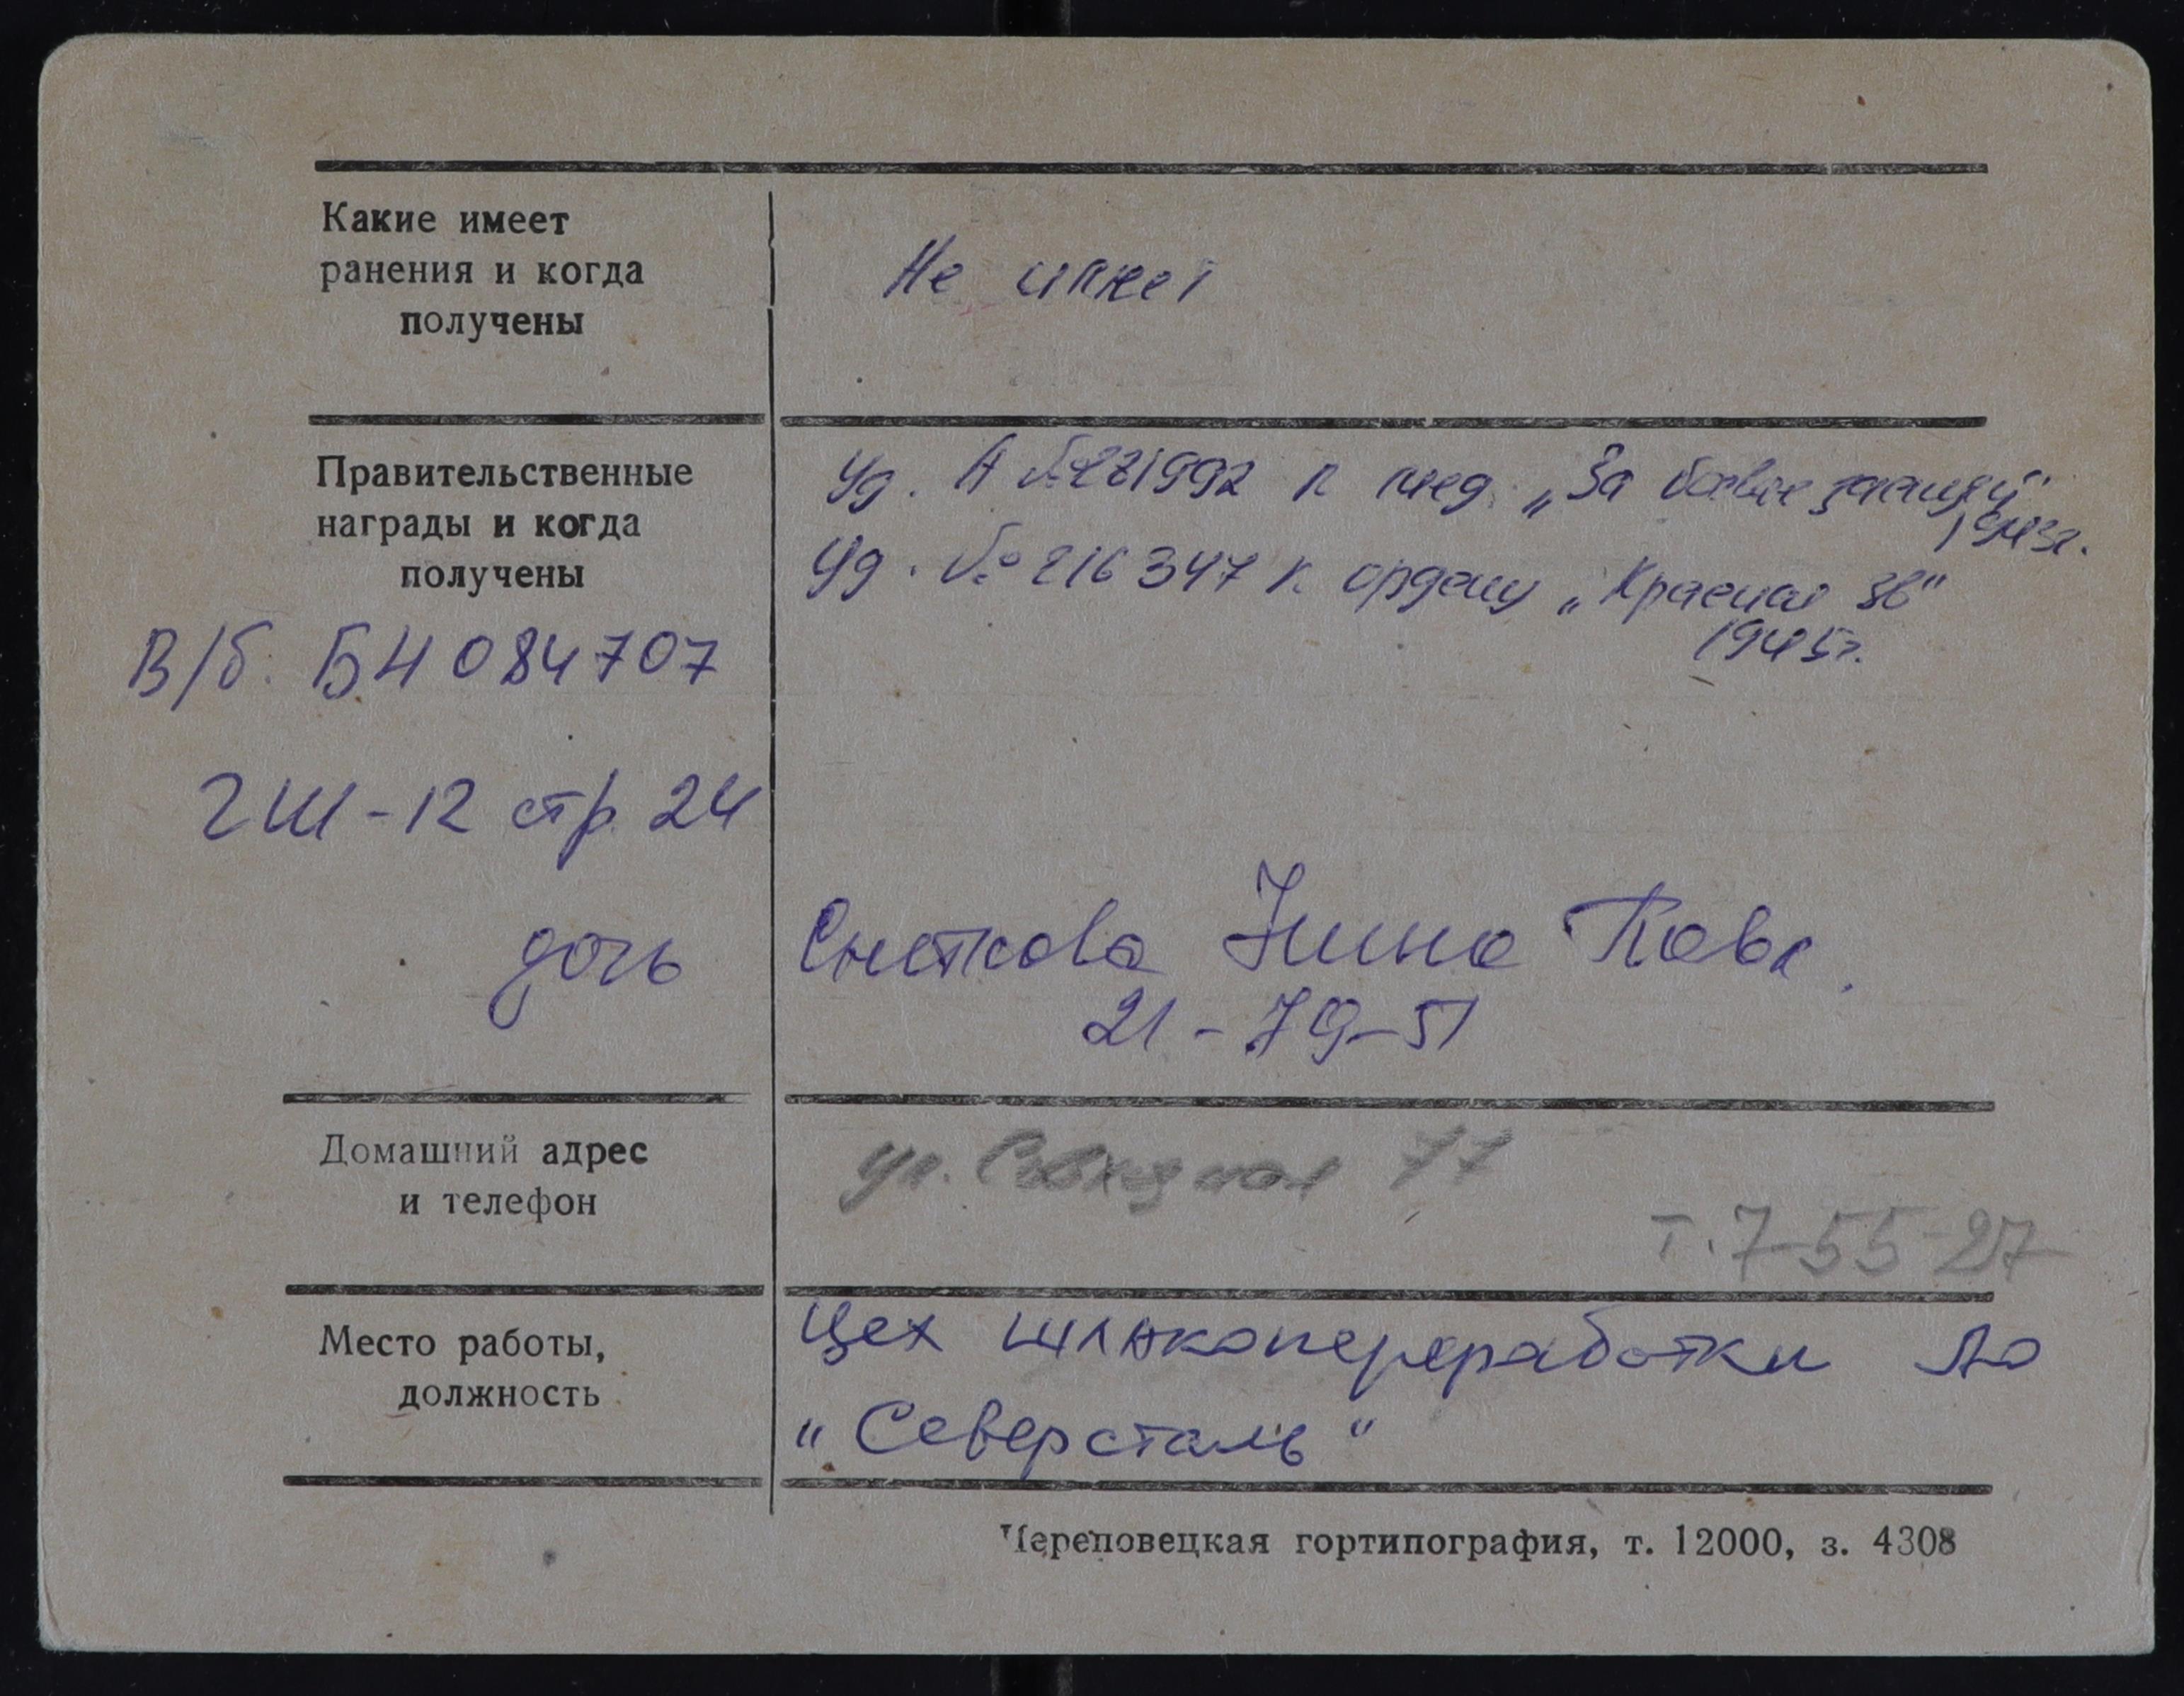 Какие имеет
ранения и когда
получены
Не имеет
Правительственные
награды и когда
получены
Уд. А №271992 к мед. „За боевые заслуги"
1943г.
Уд. №216347 к ордену „Красная Зв"
1945г.
В/б. БН 084707
2Ш-12 стр. 24
дочь
Сметкова Нина Павл.
21-79-51
Домашний адрес
и телефон
ул. 77
т. 7-55-27
Место работы,
должность
Цех шлакопереработки АО
"Северсталь"
Череповецкая гортипография, т. 12000, з. 4308